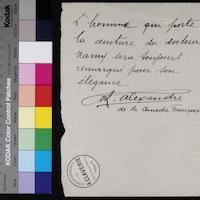 L'homme qui porte
la ceinture du docteur
Namy sera toujours
remarqué pour son
élégance
R. Alexandre
de la Comédie Française
KODAK Color Control Patches
Kodak
A. CLAVERIE